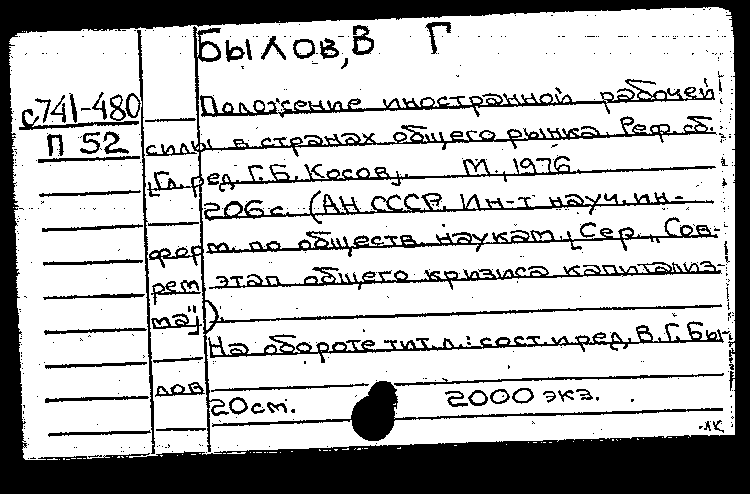 Былов, В Г
с741-480
П 52
Положение иностранной рабочей
силы в странах общего рынка. Реф. сб.
[Гл. ред. Г.Б. Косов]. М., 1976.
206 с. (АН СССР. Ин-т науч. ин-
форм. по обществ. наукам. [Сер. „Сов-
рем этап общего кризиса капитализ-
ма"]).
На обороте тит. л.: сост. и ред. В.Г. Бы-
лов
20 см. 2000 экз.
-ЛК